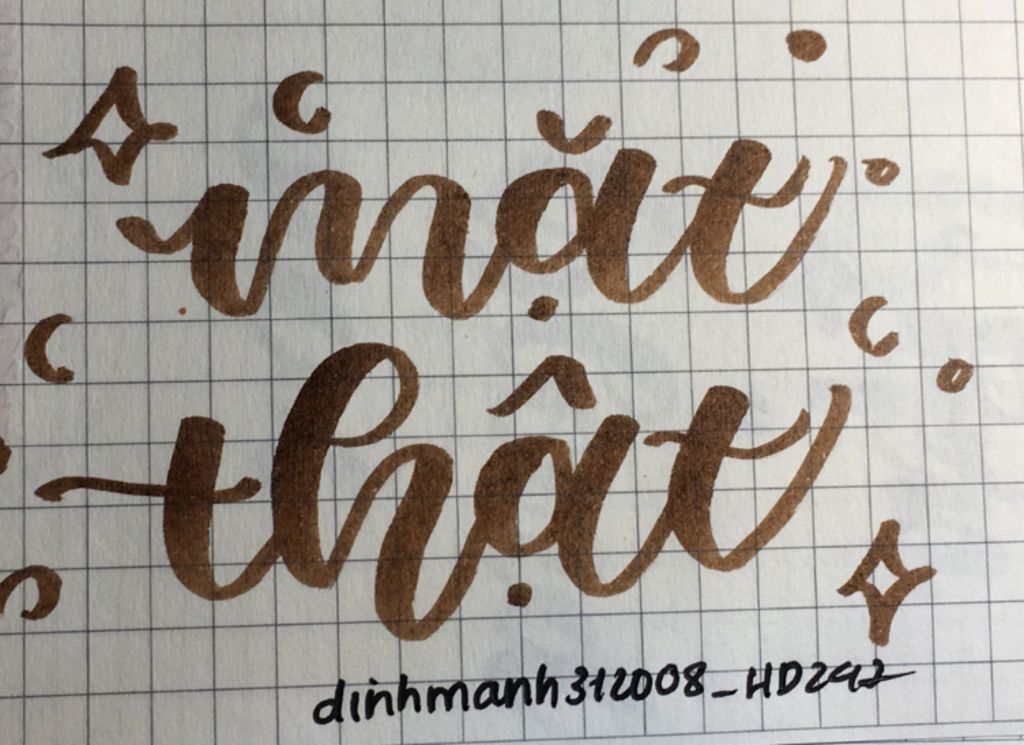 mặt
thật
dinhmanh312008_HD292